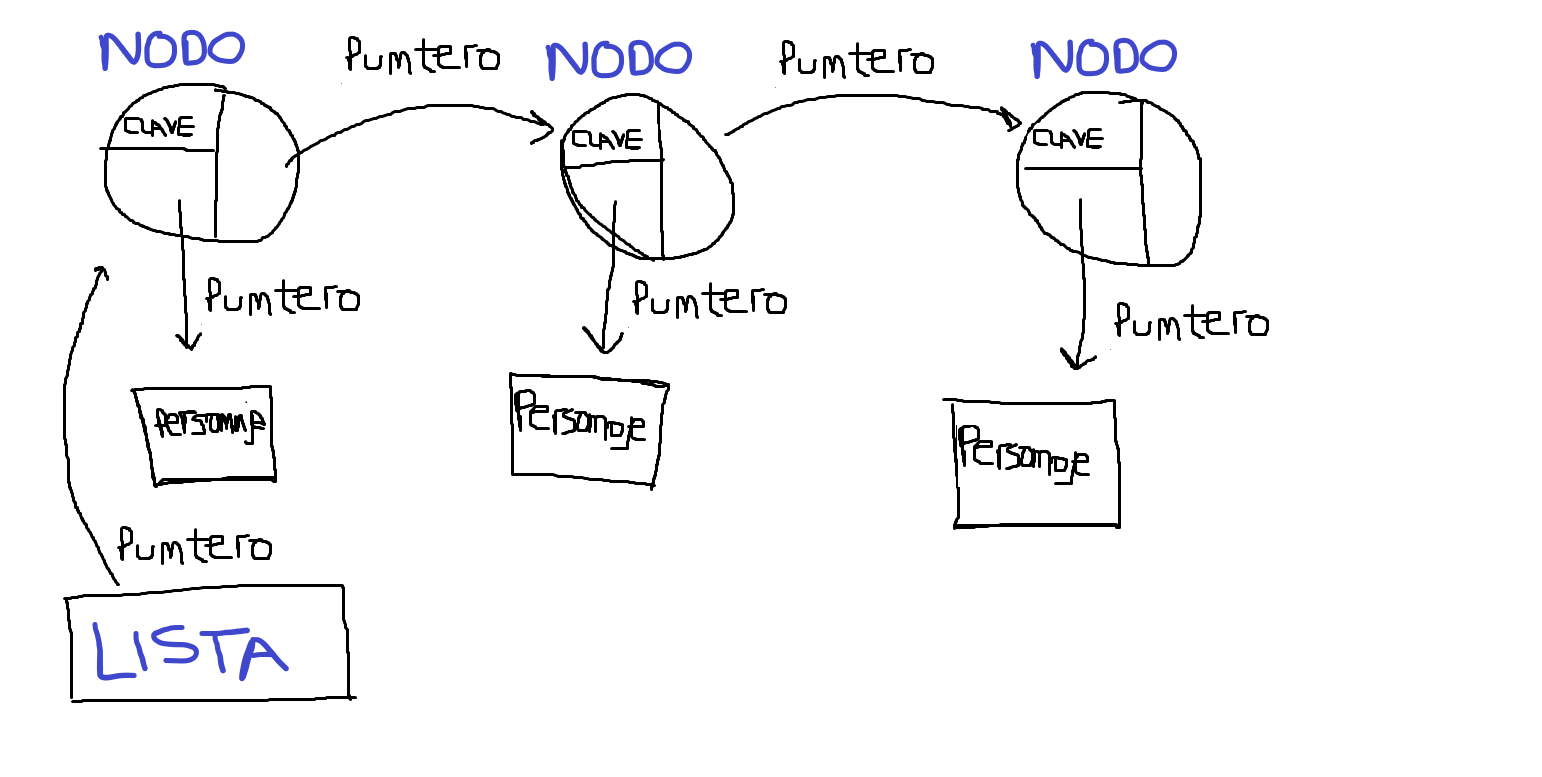 NODO
Pumtero
NODO
Pumtero
NODO
CLAVE
CLAVE
CLAVE
Pumtero
Pumtero
Pumtero
Personaje
Personaje
Personaje
Pumtero
LISTA